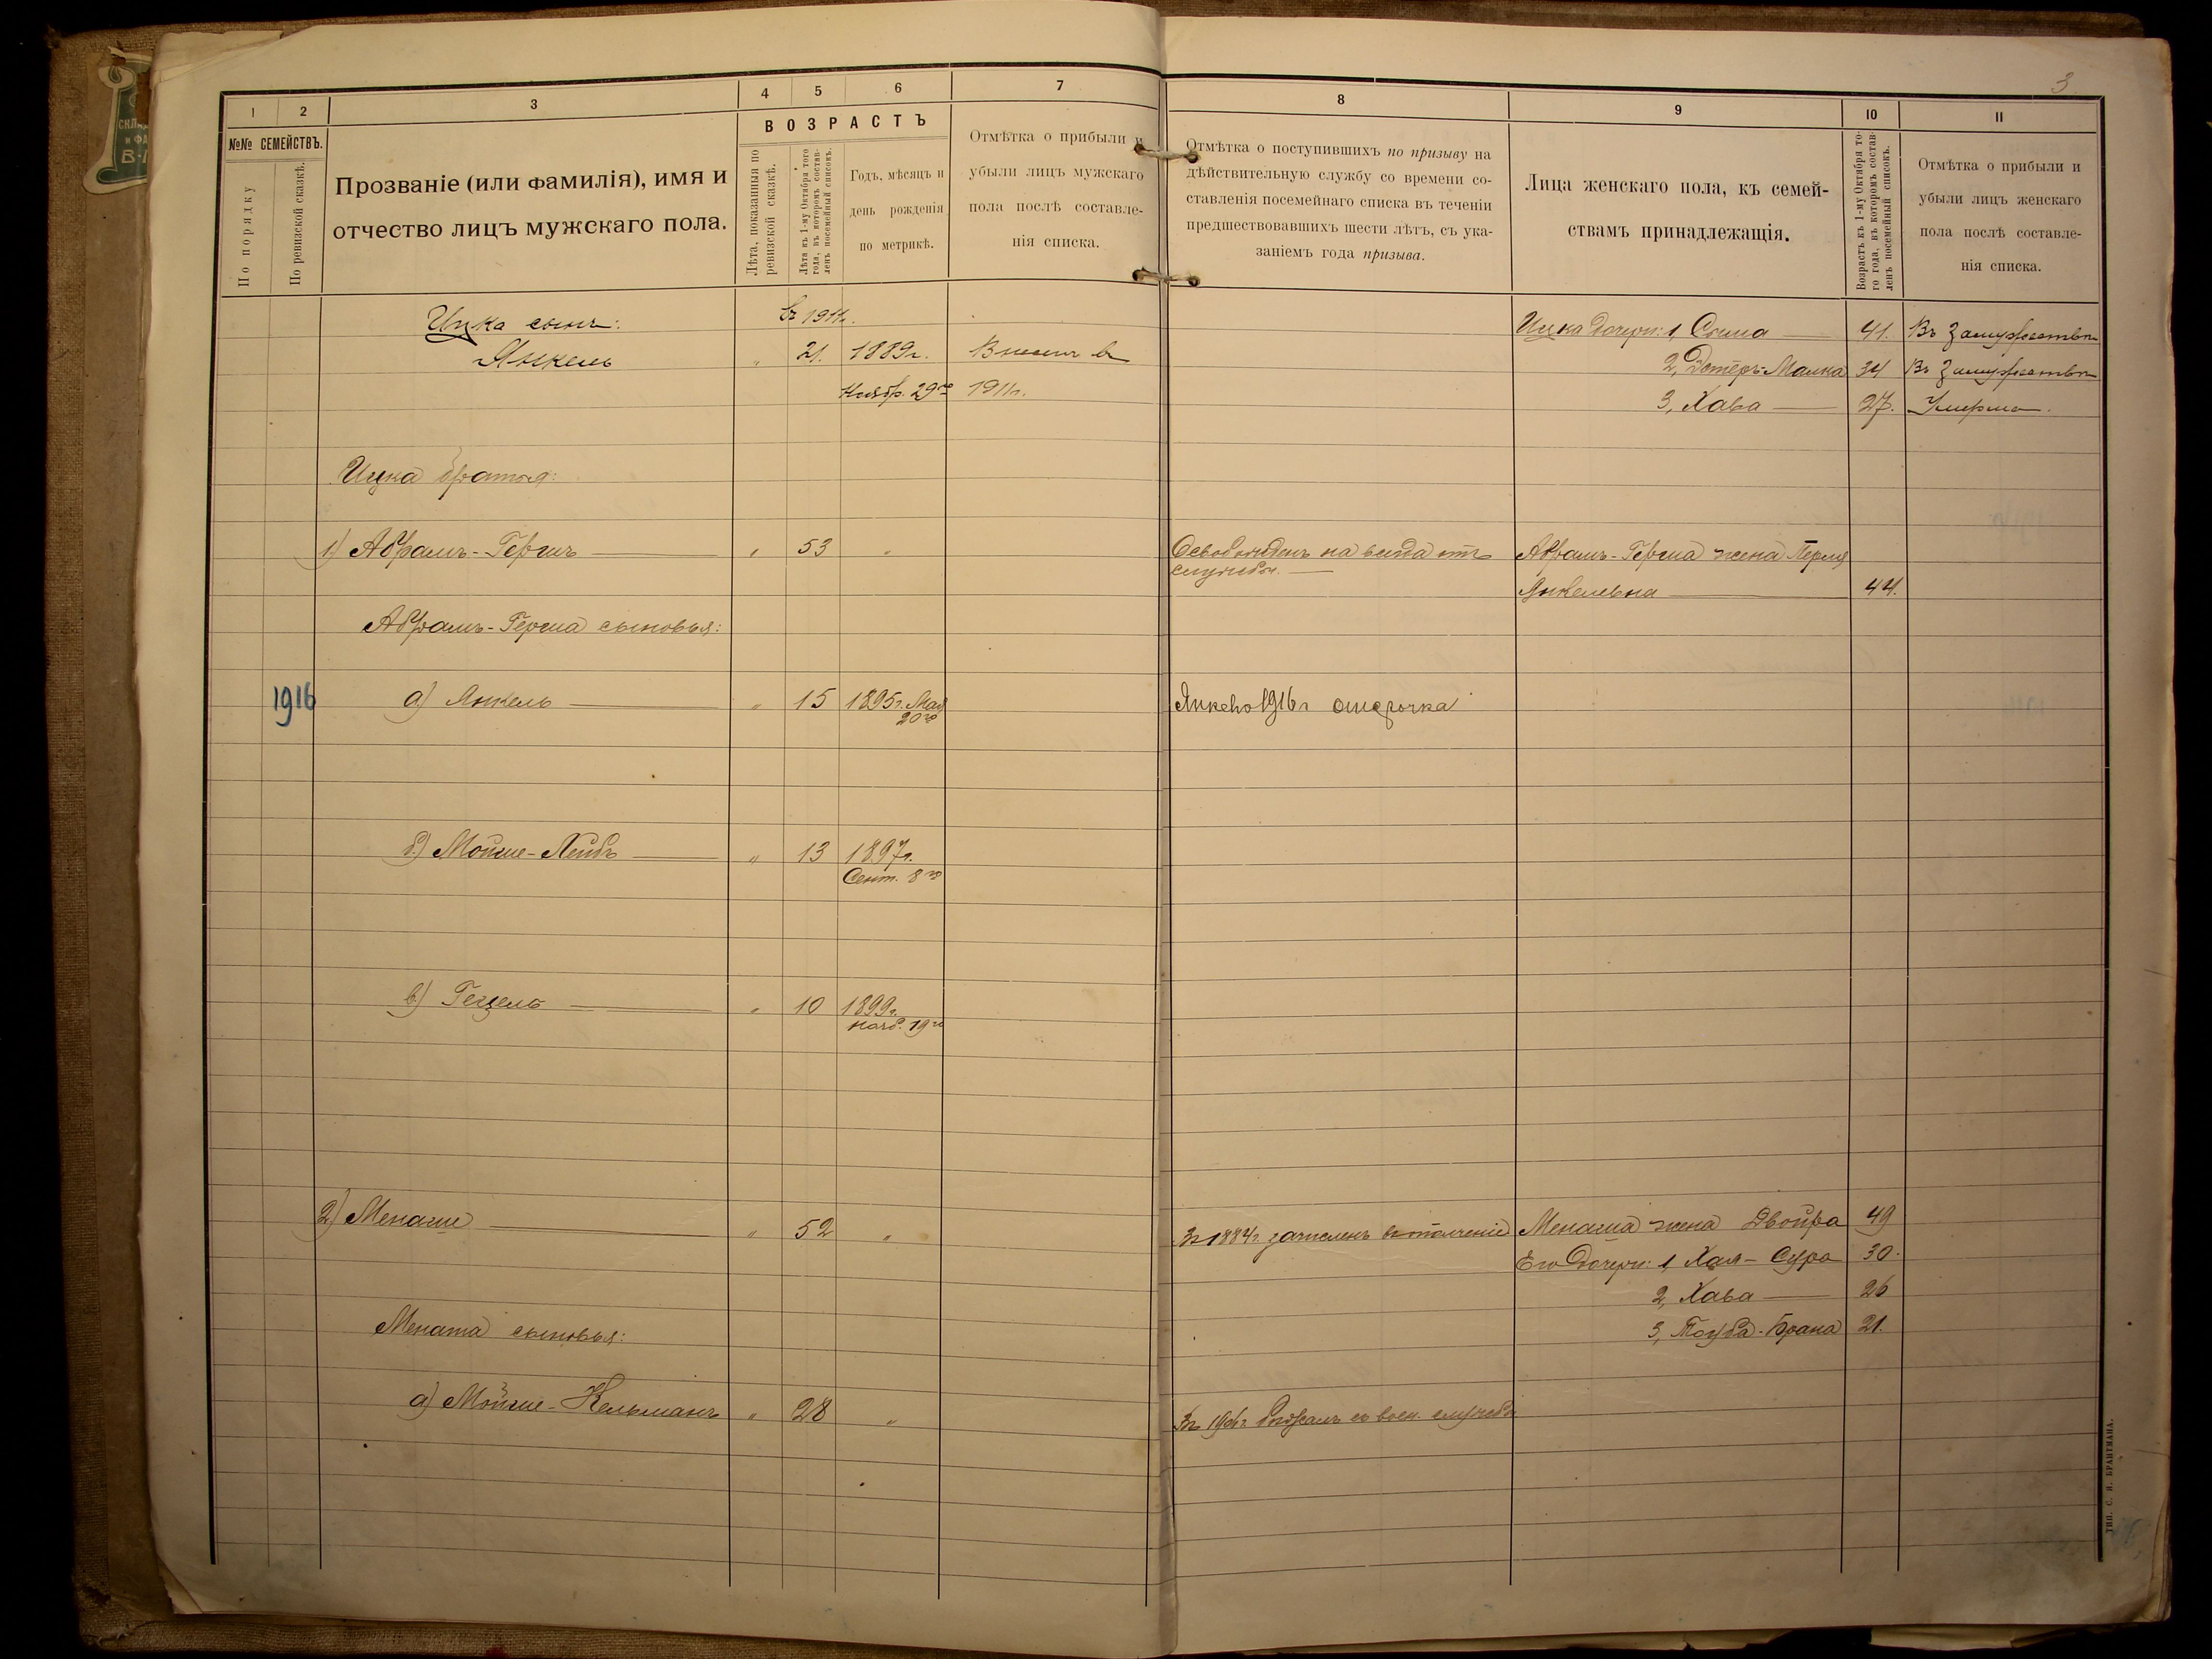 3
1
2
3
4
5
6
7
8
9
10
11
№№ СЕМЕЙСТВЪ.
По порядку
По ревизской сказкѣ.
Прозваніе (или фамилія), имя и
отчество лицъ мужскаго пола.
ВОЗРАСТЪ
Лѣта, показанныя по
ревизской сказкѣ.
Лѣта къ 1-му Октября того
года, въ которомъ состав-
ленъ посемейный списокъ.
Годъ, мѣсяцъ и
день рожденія
по метрикѣ.
Отмѣтка о прибыли и
убыли лицъ мужскаго
пола послѣ составле-
нія списка.
Отмѣтка о поступившихъ по призыву на
дѣйствительную службу со времени со-
ставленія посемейнаго списка въ теченіи
предшествовавшихъ шести лѣтъ, съ ука-
заніемъ года призыва.
Лица женскаго пола, къ семей-
ствамъ принадлежащія.
Возрастъ къ 1-му Октября то-
го года, въ которомъ состав-
ленъ посемейный списокъ.
Отмѣтка о прибыли и
убыли лицъ женскаго
пола послѣ составле-
нія списка.
Ицка сынъ:
въ 1911г.
Янкель " 21. 1889г. Внесенъ въ
Ноябр. 29го 1911г.
Ицка дочери: 1, Сима 41. Въ замужествѣ
2, Малка 34 Въ замужествѣ
3, Хава 27. Умерла.
Ицка братья:
1) Абрамъ-Гершъ " 53 "
Освобожденъ на всегда отъ
службы.
Абрамъ-Герша жена Перля
Янкелевна 44.
Абрамъ-Герша сыновья:
1916 а) Янкель " 15 1895г. Мая
20го
1916г отсрочка
б) Мойше-Лейбъ " 13 1897г.
Сент. 8го
в) Гецель " 10 1899г.
нояб. 19го
2) Менаше " 52 "
Въ 1884г. зачисленъ въ ополченіе
Менаша жена Двойра 49
Его дочери: 1, Хая-Сура 30.
2, Хава 26
3, Тауба-Брана 21.
Менаша сыновья:
а) Мойше-Кельманъ " 28 "
воен. службы
ТИП. С. И. БРАНТМАНА.